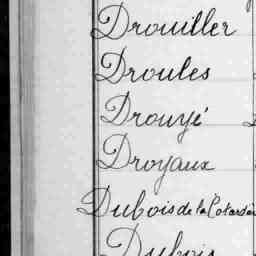 Drouiller
Droules
Drouyé
Droyaux
Dubois de la
Dubois